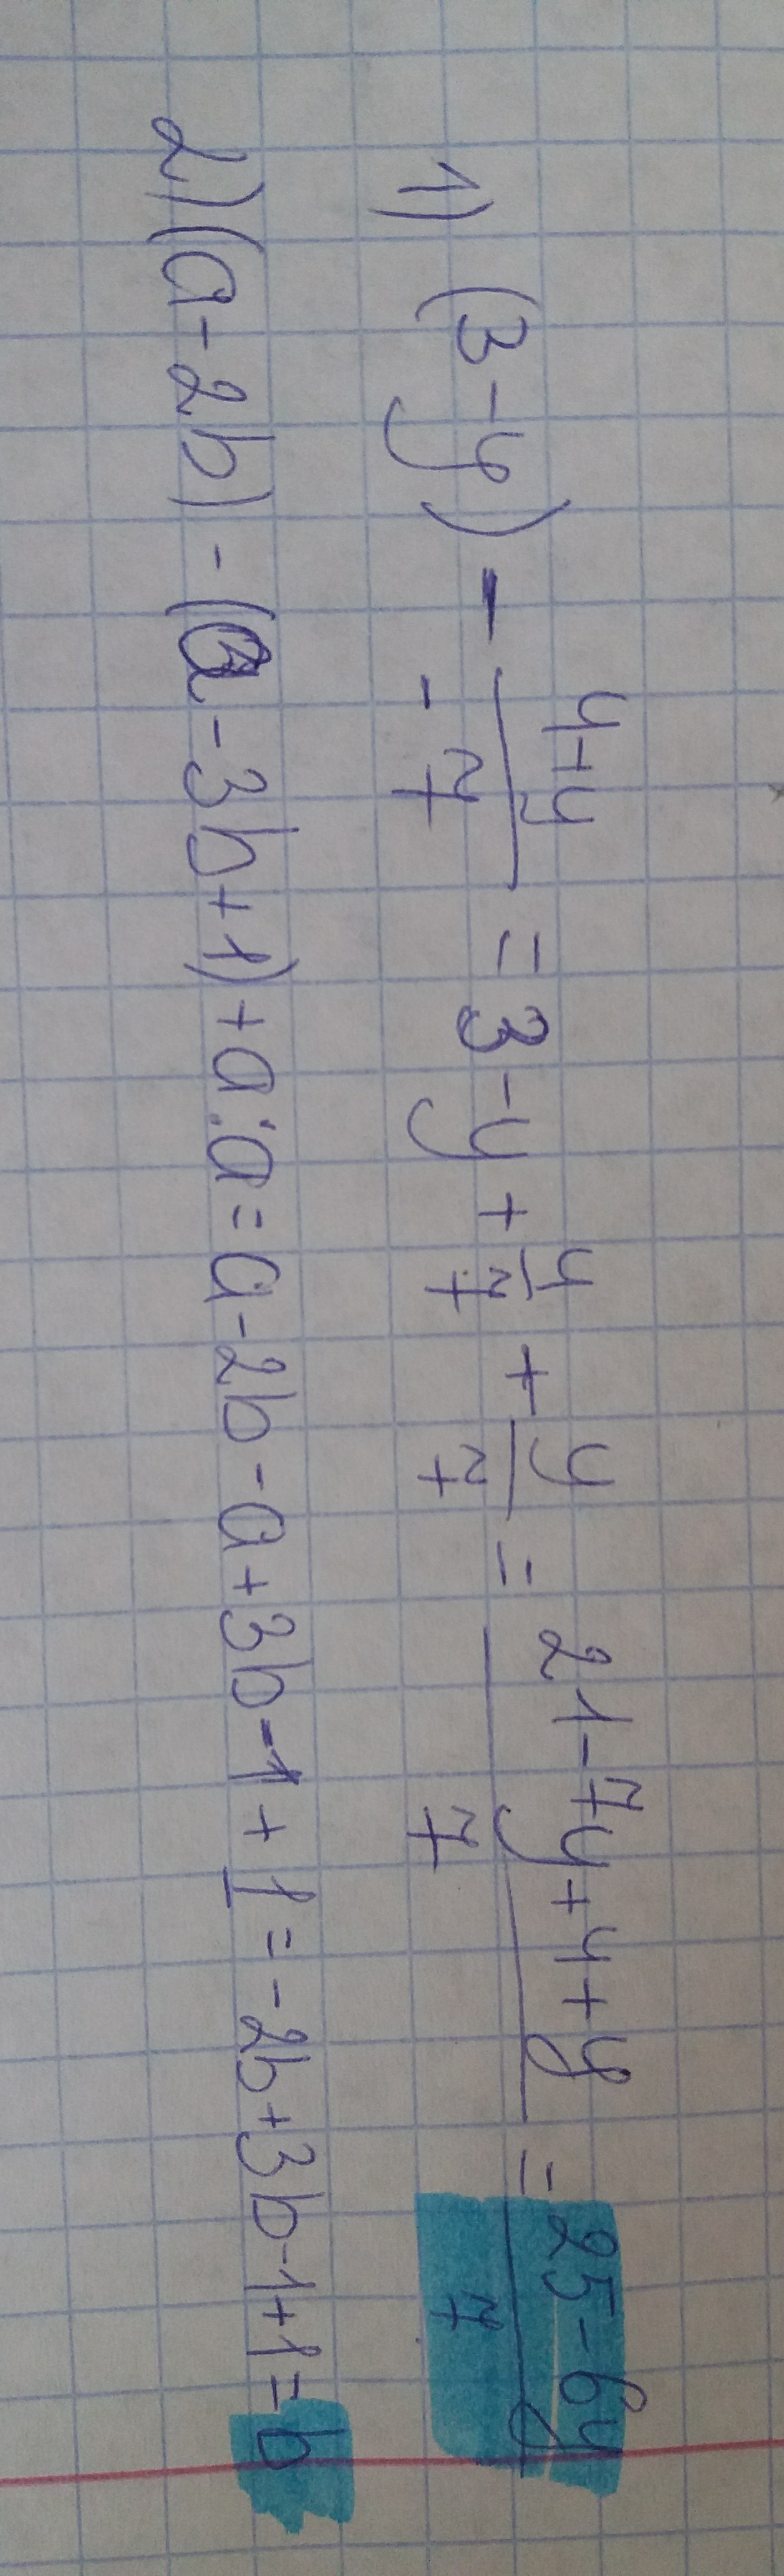 1) (3-y) - \frac{4+y}{-7} = 3-y + \frac{4}{7} + \frac{y}{7} = \frac{21-7y+4+y}{7} = \frac{25-6y}{7}
2) (a-2b) - (a-3b+1) + a:a = a-2b-a+3b-1+1 = -2b+3b-1+1 = b